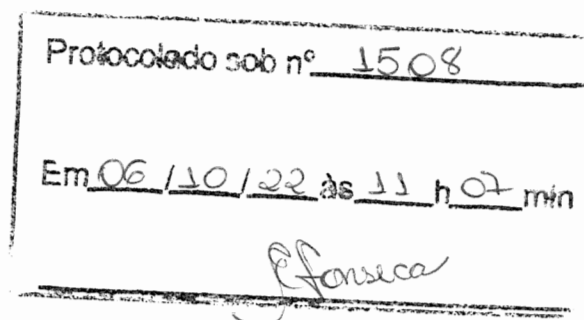 Protocolado sob nº 1508
Em 06/10/22 às 11 h 07 min
Efonseca